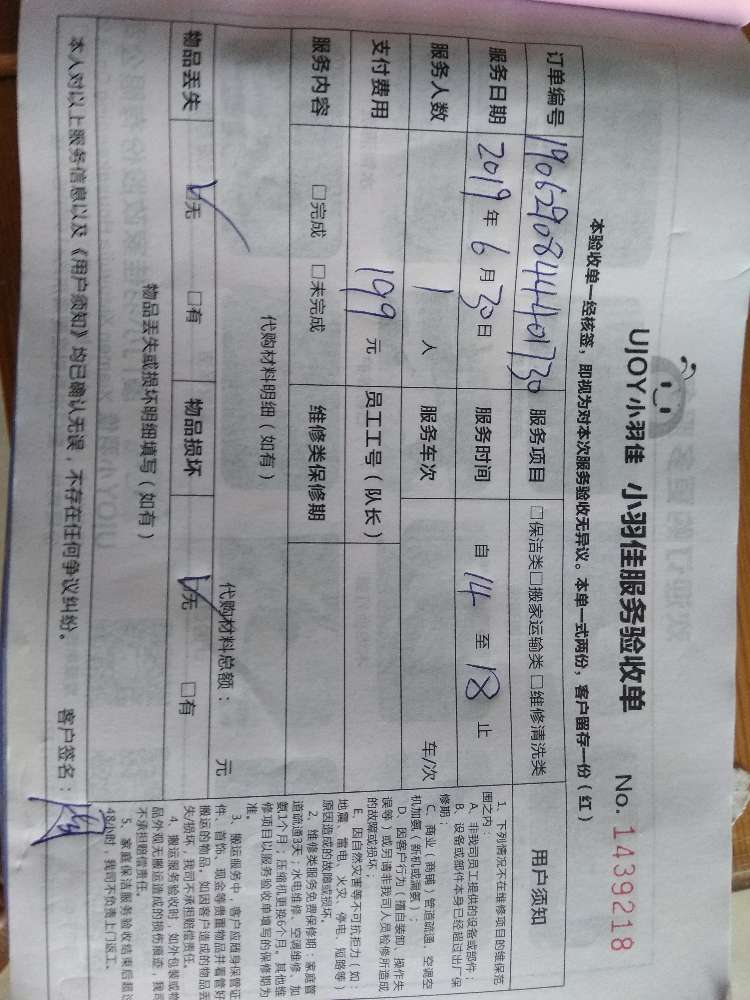 UJOY小羽佳 小羽佳服务验收单 No. 1439218
本验收单一经核签，即视为对本次服务验收无异议。本单一式两份，客户留存一份（红）
订单编号 190629084440 1730 服务项目 □保洁类□搬家运输类□维修清洗类
服务日期 2019年6月30日 服务时间 自14至18止
服务人数 1人 服务车次 车/次
支付费用 199元 员工工号（队长）
服务内容 □完成 □未完成 维修类保修期
代购材料明细（如有）
代购材料总额： 元
物品丢失 □无 □有 物品损坏 □无 □有
物品丢失或损坏明细填写（如有）
本人对以上服务信息以及《用户须知》均已确认无误，不存在任何争议纠纷。 客户签名：
用户须知
1、下列情况不在维修项目的维保范
围之内：
A、非我司员工提供的设备或部件；
B、设备或部件本身已经超过出厂保
修期；
C、商业（商铺）管道疏通，空调空
机加氟（新机或漏氟）；
D、因客户行为（擅自装卸、操作失
误等）或另请非我司人员检修所造成
的故障或损坏；
E、因自然灾害等不可抗拒力（如：
地震、雷电、火灾、停电、短路等）
原因造成的故障或损坏。
2、维修类服务免费保修期：家庭管
道疏通3天；水电维修、空调维修、加
氨1个月；压缩机更换6个月。其他维
修项目以服务验收单填写的保修期为
准。
3、搬运服务中，客户应随身保管证
件、首饰、现金等贵重物品并看管好
搬运的物品。如因客户造成的物品丢
失/损坏，我司不承担赔偿责任。
4、搬运服务验收时，如外包装或物
品外观无搬运造成的损伤痕迹，我司
不承担赔偿责任
5、家庭保洁服务验收结束后超过
48小时，我司不负责上门返工。